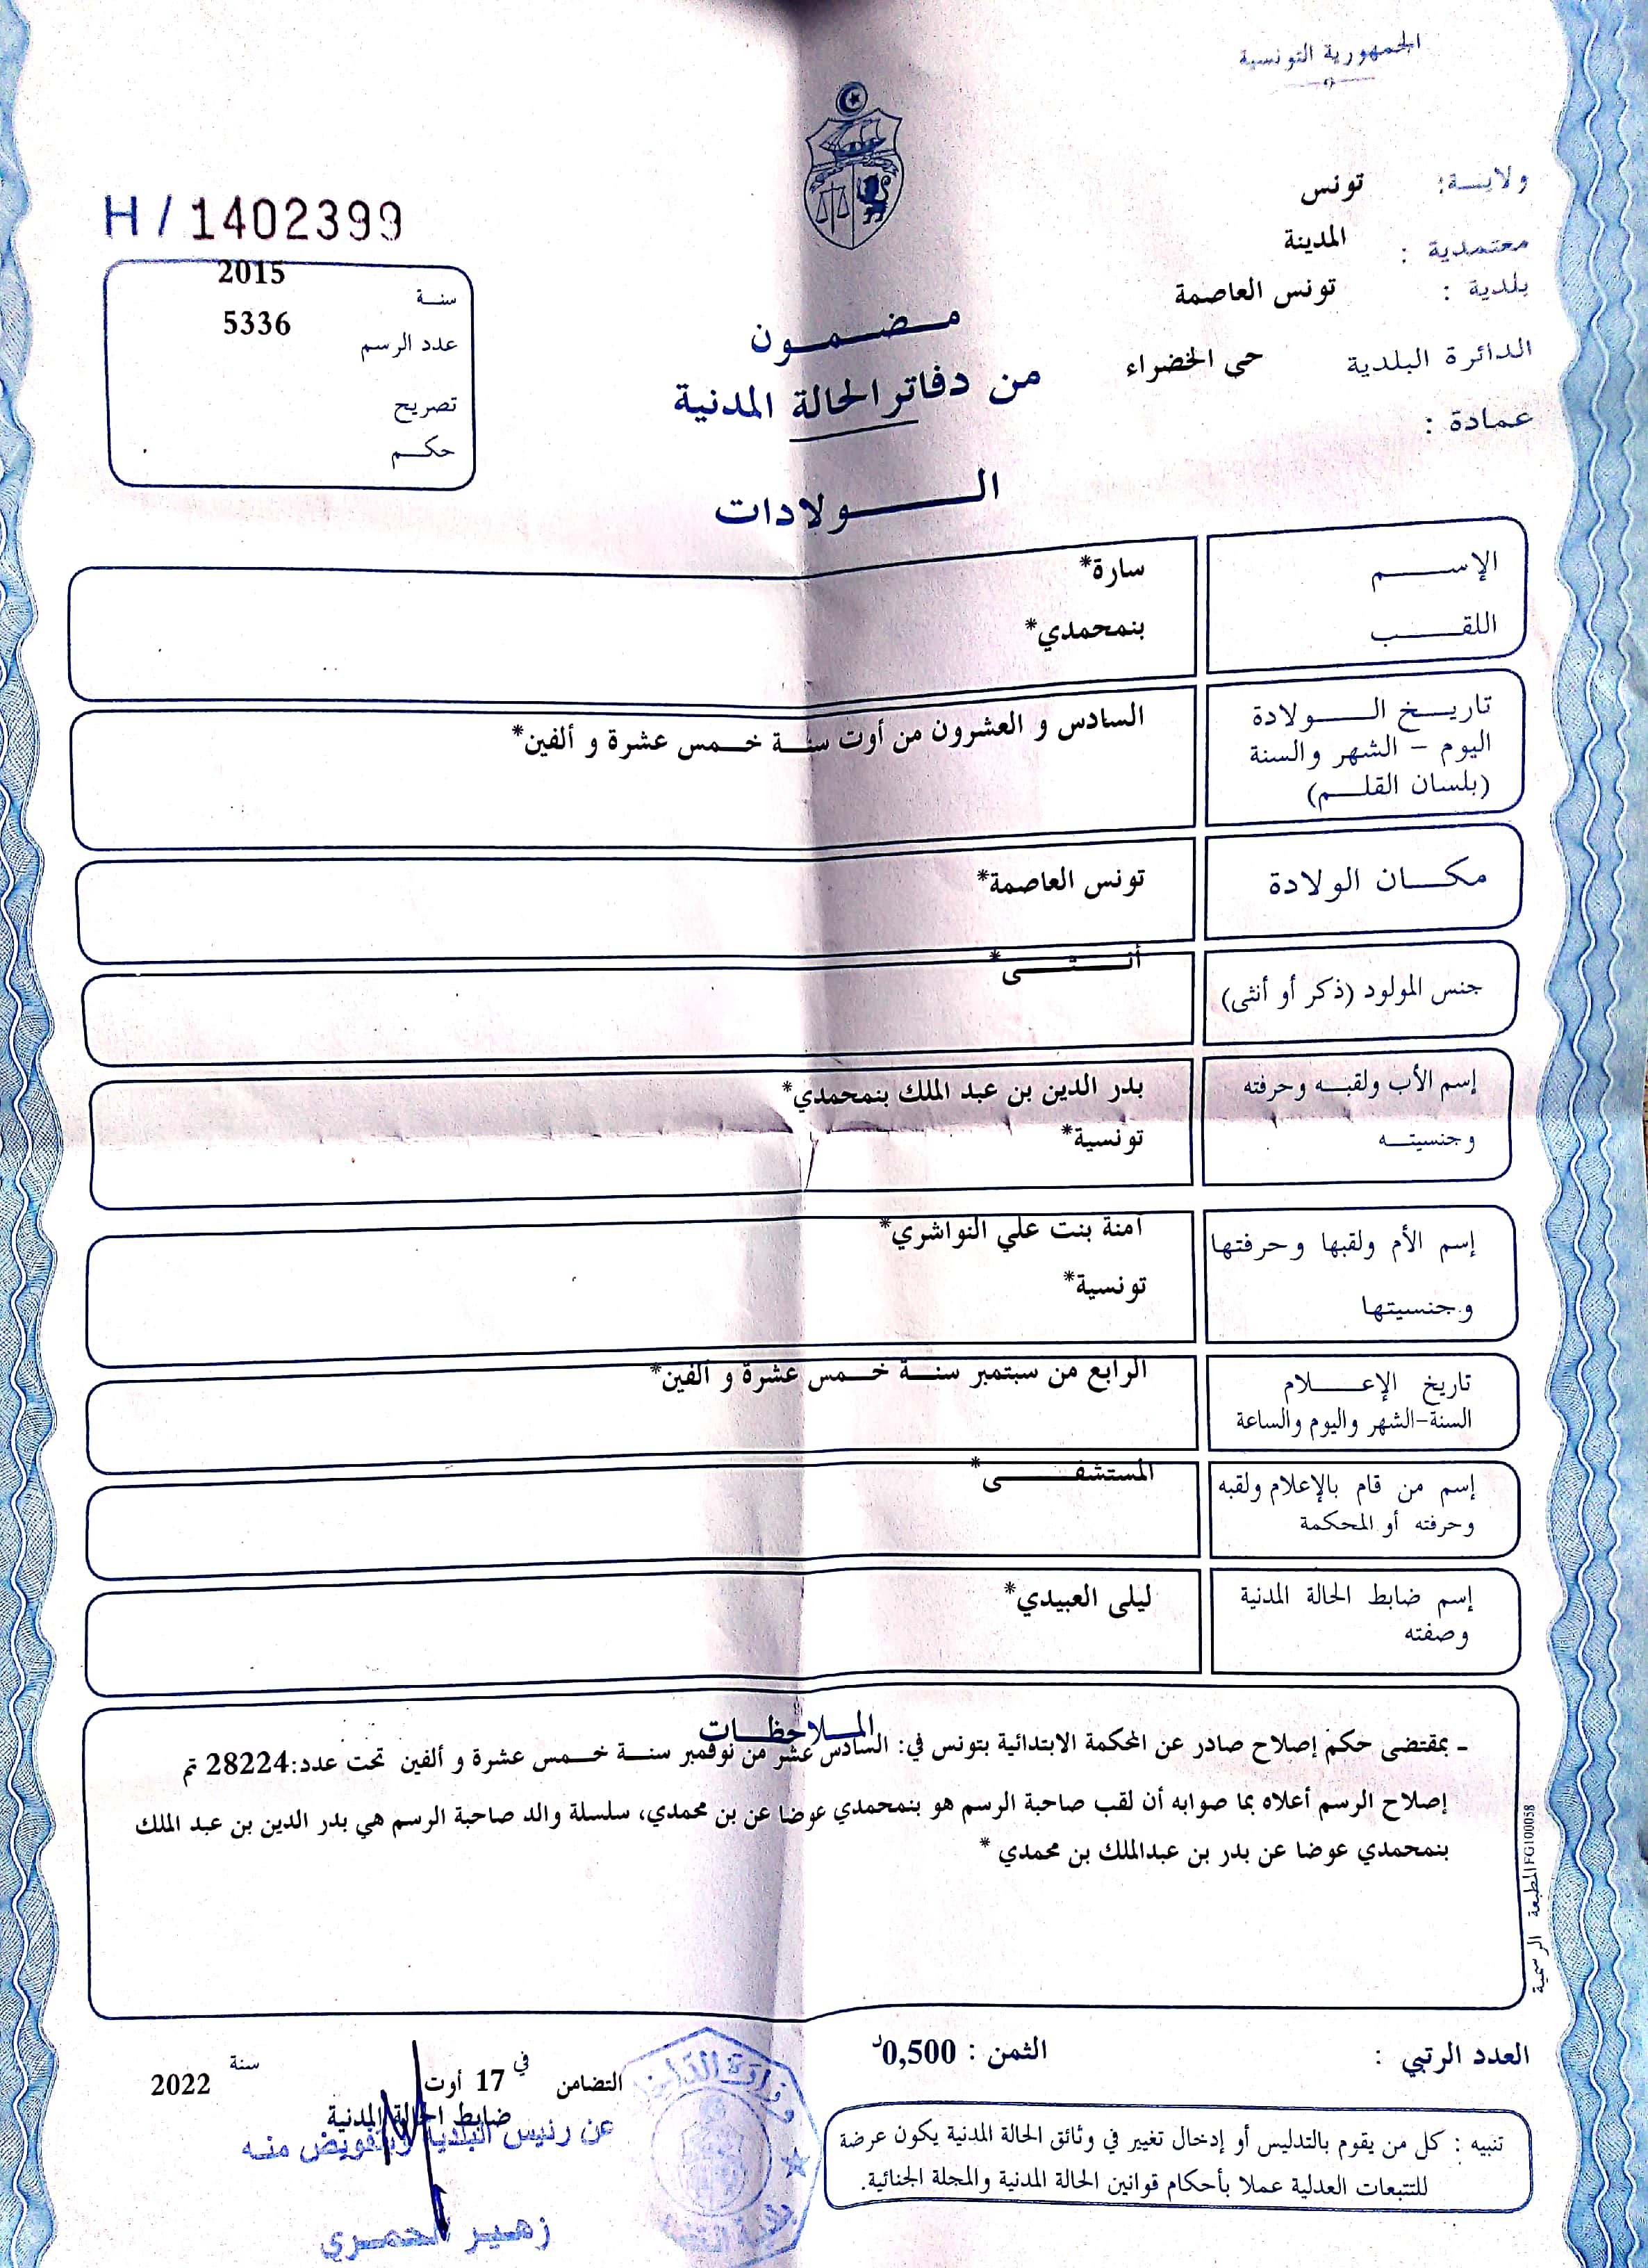 الجمهورية التونسية
ولايــة: تونس
معتمدية : المدينة
بلدية : تونس العاصمة
الدائرة البلدية حي الخضراء
عمادة :
H / 1402399
سنـة 2015
عدد الرسم 5336
تصريح
حكـم
مـضـمـون
من دفاتر الحالة المدنية
الــولادات
الإســم سارة*
اللقــب بنمحمدي*
تاريـخ الــولادة
اليوم - الشهر والسنة
(بلسان القلـم)
السادس و العشرون من أوت سنـة خـمس عشرة و ألفين*
مكـان الولادة تونس العاصمة*
جنس المولود (ذكر أو أنثى) أنـثـى*
إسم الأب ولقبـه وحرفته بدر الدين بن عبد الملك بنمحمدي*
وجنسيتـه تونسية*
إسم الأم ولقبها وحرفتها آمنة بنت علي النواشري*
وجنسيتها تونسية*
تاريخ الإعـلام
السنة-الشهر واليوم والساعة
الرابع من سبتمبر سنـة خـمس عشرة و ألفين*
إسم من قام بالإعلام ولقبه
وحرفته أو المحكمة
المستشفـى*
إسم ضابط الحالة المدنية
وصفته
ليلى العبيدي*
الملاحظـات
- بمقتضى حكم إصلاح صادر عن المحكمة الابتدائية بتونس في: السادس عشر من نوفمبر سنـة خـمس عشرة و ألفين تحت عدد:28224 تم
إصلاح الرسم أعلاه بما صوابه أن لقب صاحبة الرسم هو بنمحمدي عوضا عن بن محمدي، سلسلة والد صاحبة الرسم هي بدر الدين بن عبد الملك
بنمحمدي عوضا عن بدر بن عبدالملك بن محمدي *
المطبعة الرسمية FG100058
العدد الرتبي :
الثمن : 0,500د
التضامن في 17 أوت سنة 2022
ضابط الحالة المدنية
عن رئيس البلدية وبتفويض منه
زهير الحمري
وزارة الداخلية
تنبيه : كل من يقوم بالتدليس أو إدخال تغيير في وثائق الحالة المدنية يكون عرضة
للتتبعات العدلية عملا بأحكام قوانين الحالة المدنية والمجلة الجنائية.